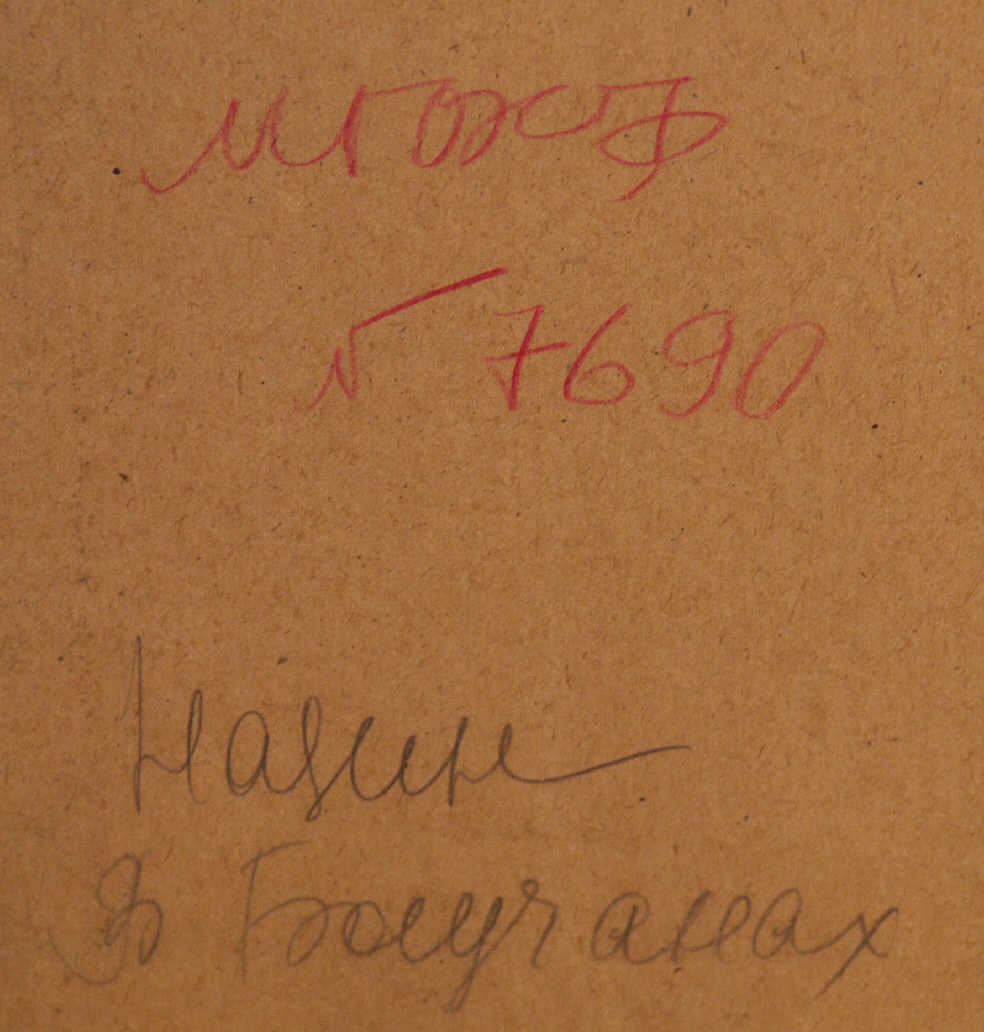 МГОХФ
№ 7690
Назин
В Богучанах